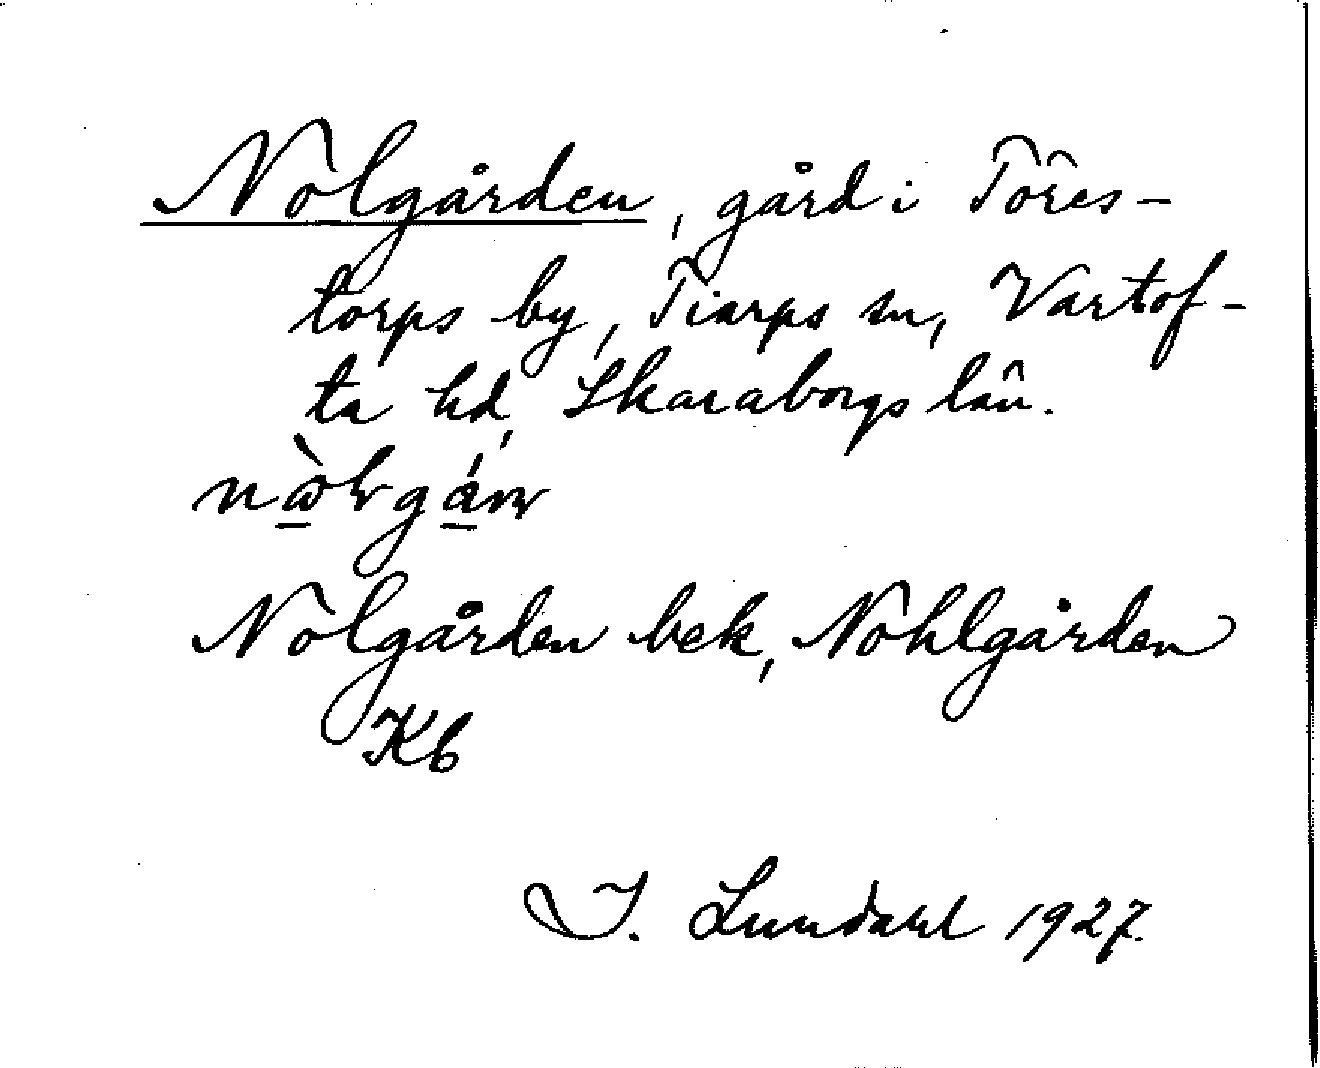 Nolgården, gård i Töres-
torps by, Tiarps sn, Vartof-
ta hd, Skaraborgs län.
Nolgården bek, Nohlgården
Kb
I. Lundahl 1927.